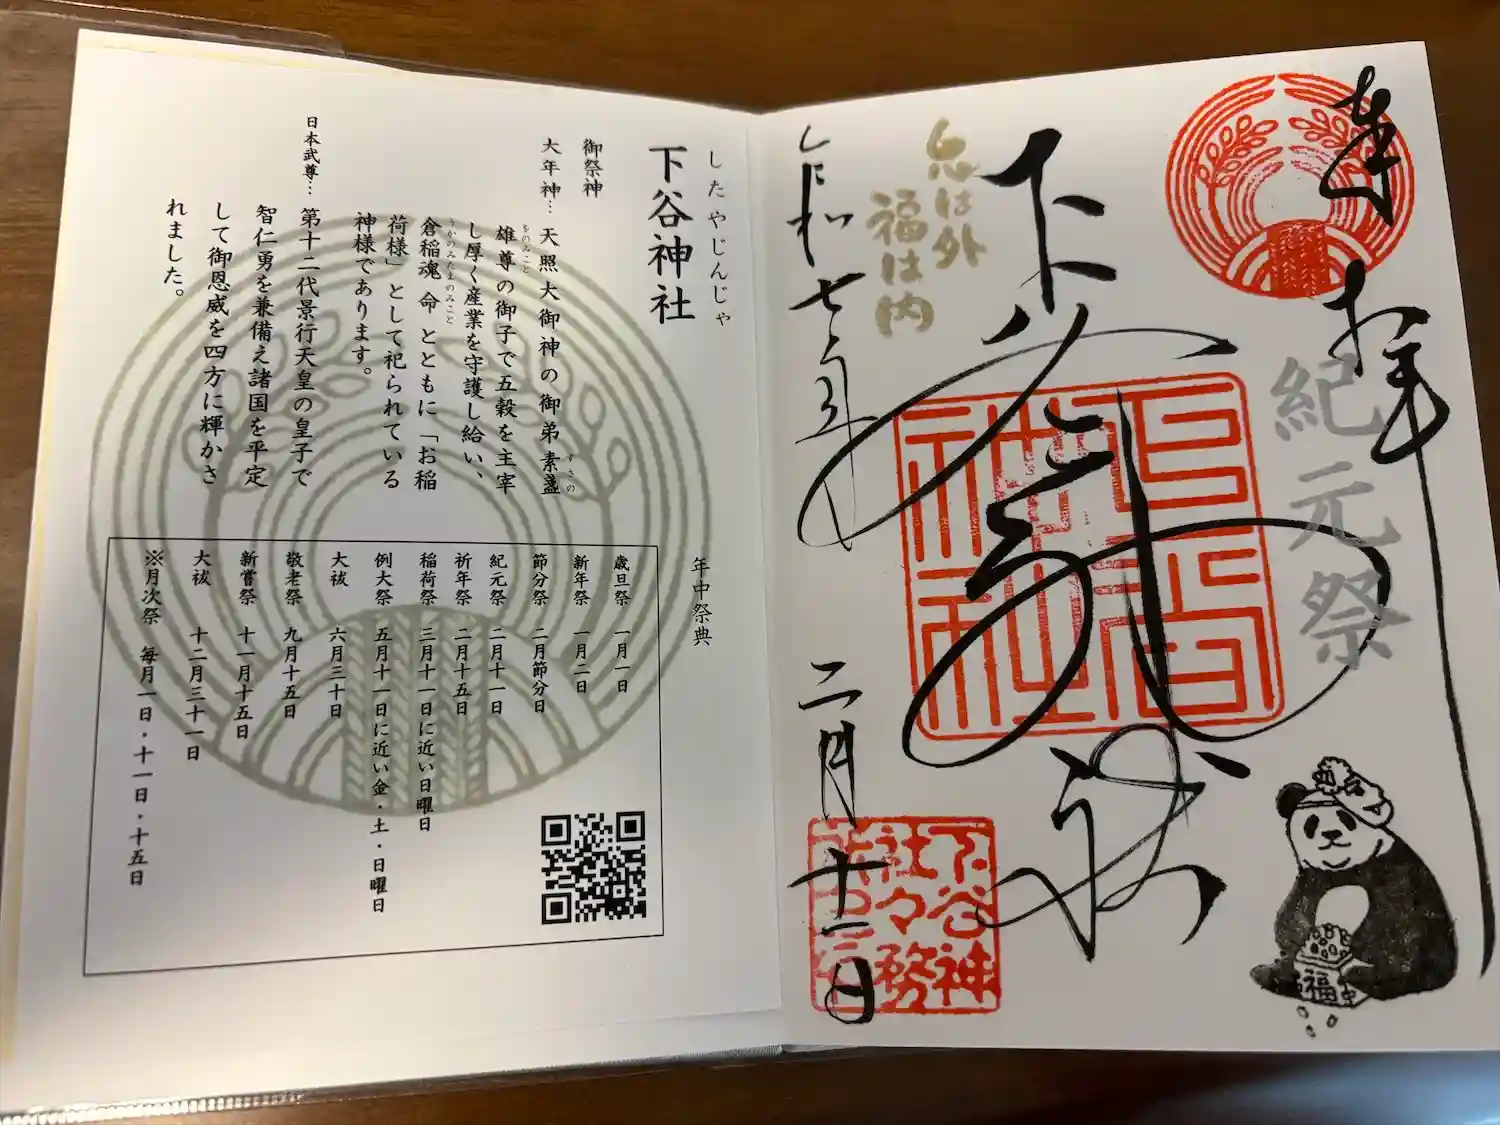 奉拝
紀元祭
下谷神社
鬼は外
福は内
令和七年
二月十一日
下谷神
社々務
福
したやじんじゃ
下谷神社
御祭神
大年神…天照大御神の御弟素盞
すさの
雄尊の御子で五穀を主宰
をのみこと
し厚く産業を守護し給い、
倉稲魂命とともに「お稲
うかのみたまのみこと
荷様」として祀られている
神様であります。
日本武尊…第十二代景行天皇の皇子で
智仁勇を兼備え諸国を平定
して御恩威を四方に輝かさ
れました。
年中祭典
歳旦祭 一月一日
新年祭 一月二日
節分祭 二月節分日
紀元祭 二月十一日
祈年祭 二月十五日
稲荷祭 三月十一日に近い日曜日
例大祭 五月十一日に近い金・土・日曜日
大祓 六月三十日
敬老祭 九月十五日
新嘗祭 十一月十五日
大祓 十二月三十一日
※月次祭 毎月一日・十一日・十五日